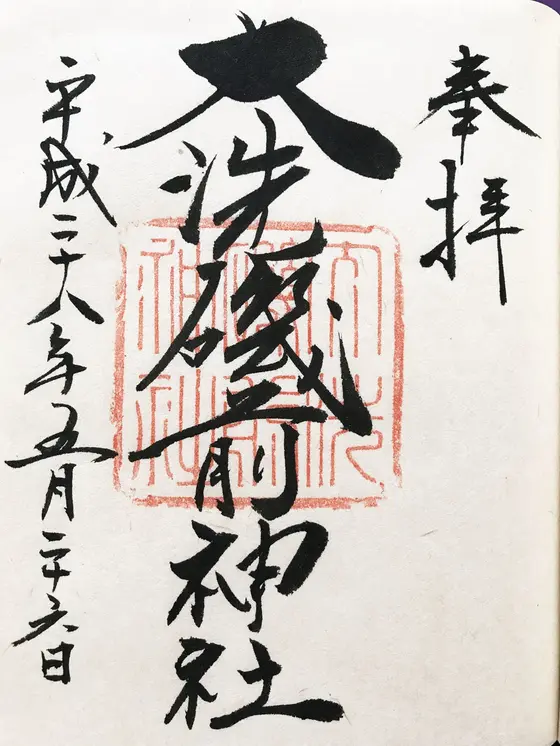 奉拝
大洗磯前神社
平成二十八年五月二十六日
大洗磯前神社